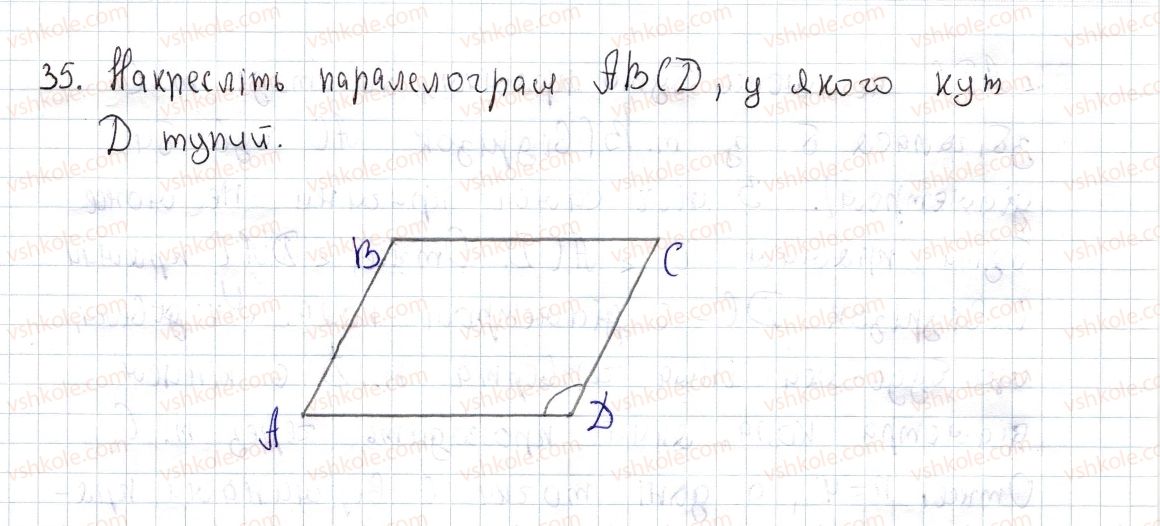 35. Накресліть паралелограм ABCD, у якого кут
D тупий.
B
C
A
D
vshkole.com